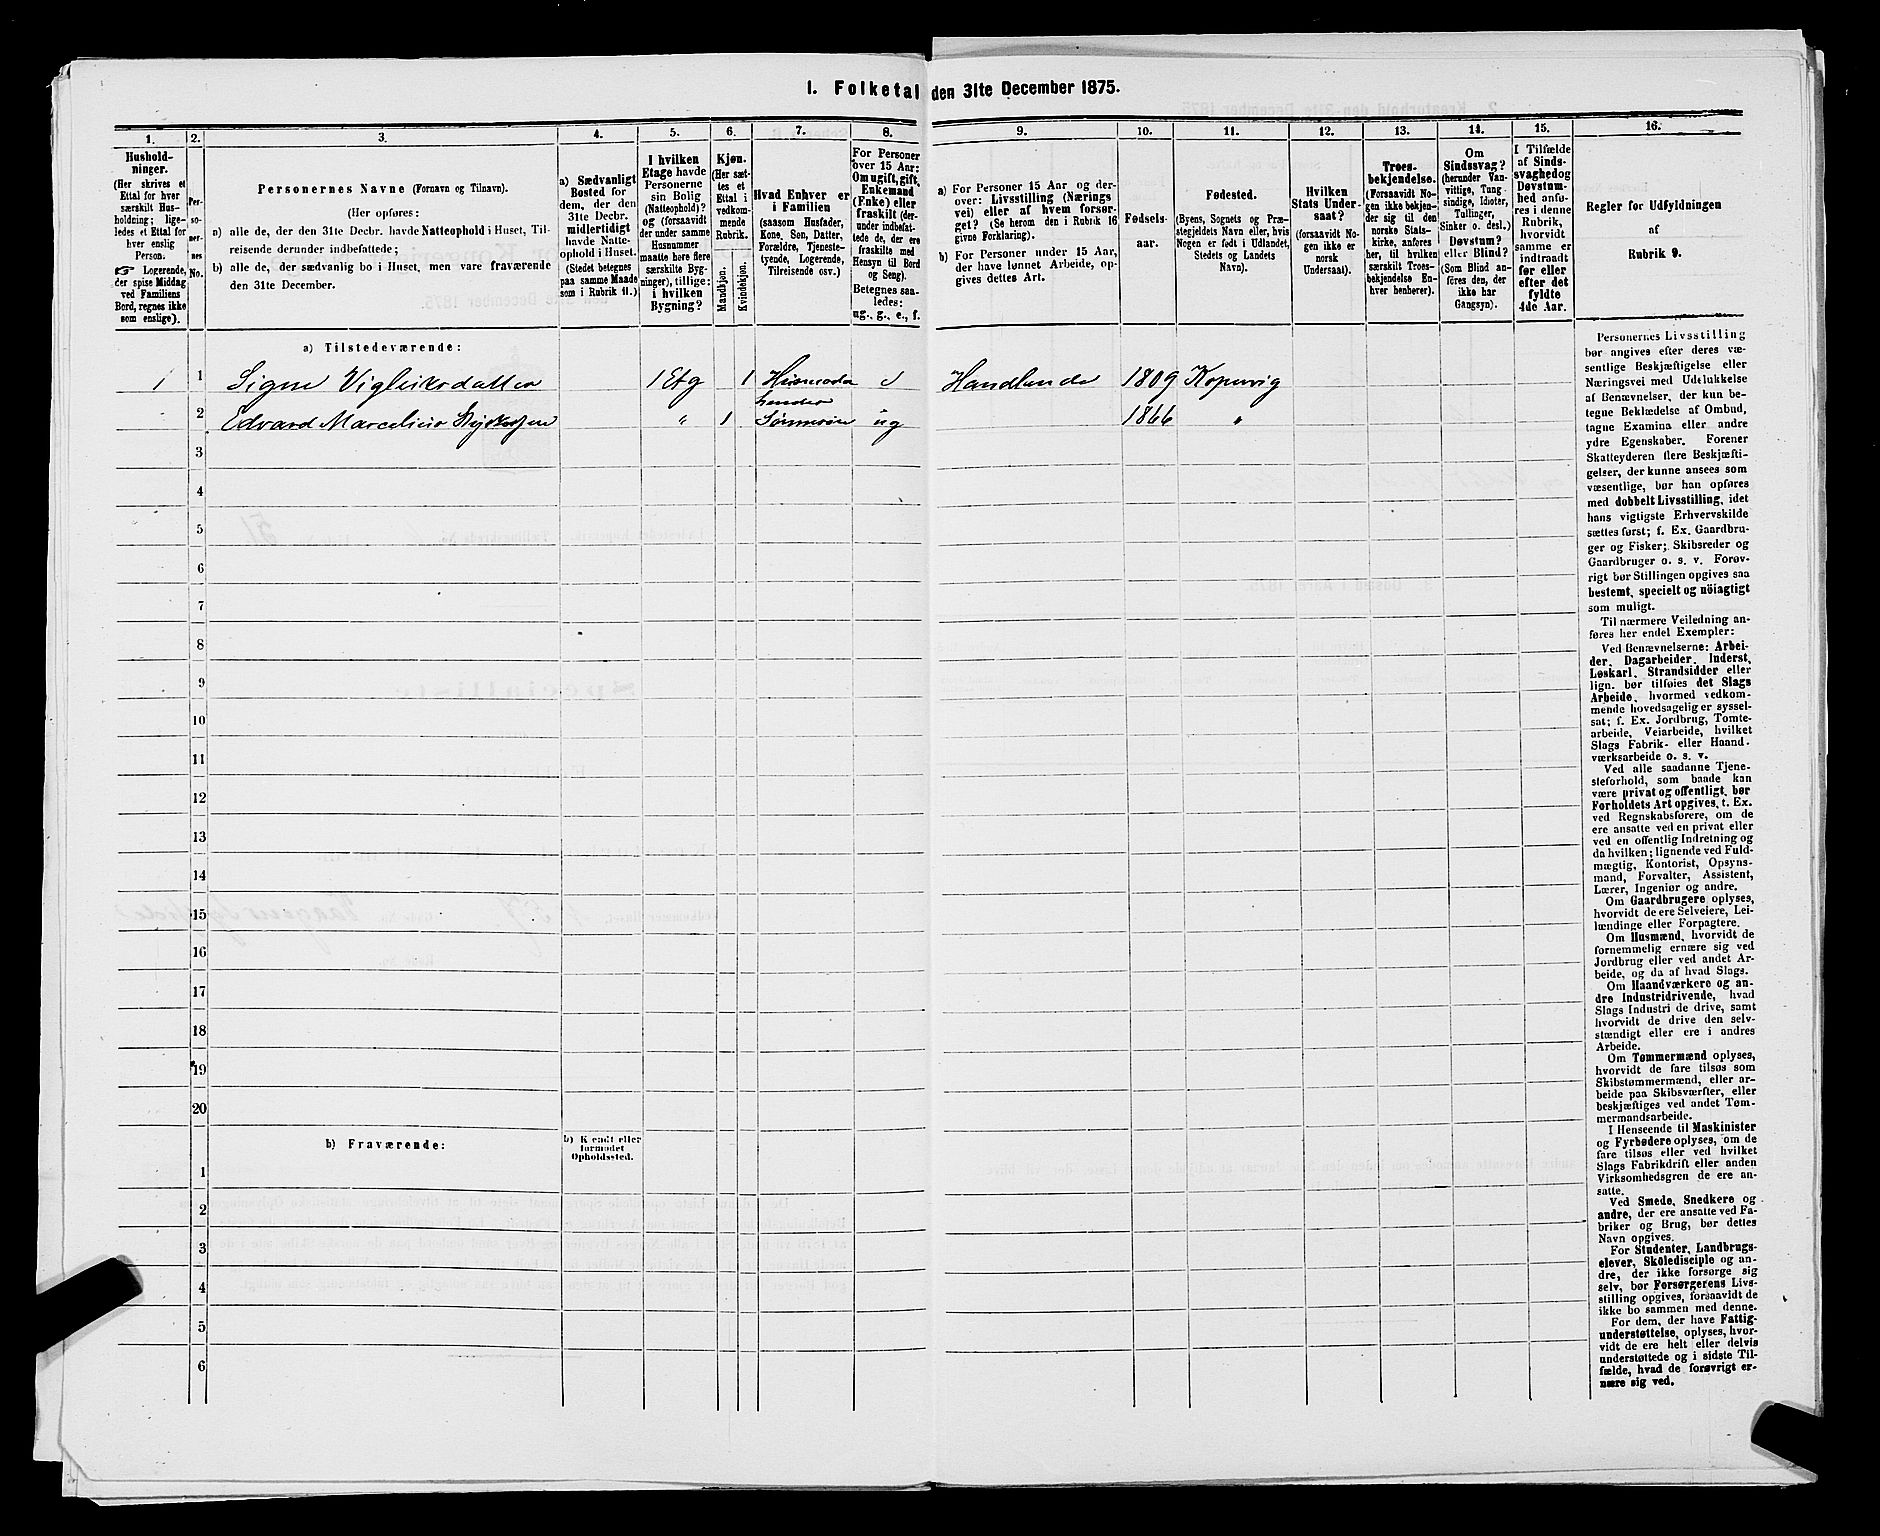 1. Folketal den 31te December 1875.
1. 2. 3. 4. 5. 6. 7. 8. 9. 10. 11. 12. 13. 14. 15. 16.
Hushold-
ninger.
(Her skrives et
Ettal for hver
særskilt Hus-
holdning; lige-
ledes et Ettal for
hver enslig
Person.
☞ Logerende,
der spise Middag
ved Familiens
Bord, regnes ikke
som enslige).
Per-
so-
ner-
nes
No.
Personernes Navne (Fornavn og Tilnavn).
(Her opføres:
a) alle de, der den 31te Decbr. havde Natteophold i Huset, Til-
reisende derunder indbefattede;
b) alle de, der sædvanlig bo i Huset, men vare fraværende
den 31te December.
a) Sædvanligt
Bosted for
dem, der den
31te Decbr.
midlertidigt
havde Natte-
ophold i Huset.
(Stedet betegnes
paa samme Maade
som i Rubrik 11.)
I hvilken
Etage havde
Personerne
sin Bolig
(Natteophold)?
og (forsaavidt
der under samme
Husnummer
maatte høre flere
særskilte Byg-
ninger), tillige:
i hvilken
Bygning?
Kjøn.
(Her sæt-
tes et
Ettal i
vedkom-
mende
Rubrik.
Mandkjøn.
Kvindekjøn.
Hvad Enhver er
i Familien
(saasom Husfader,
Kone, Søn, Datter,
Forældre, Tjeneste-
tyende, Logerende,
Tilreisende osv.)
For Personer
over 15 Aar:
Om ugift, gift,
Enkemand
(Enke) eller
fraskilt (der-
under indbefat-
tede de, der ere
fraskilte med
Hensyn til Bord
og Seng).
Betegnes saa-
ledes:
ug., g., e., f.
a) For Personer 15 Aar og der-
over: Livsstilling (Nærings
vei) eller af hvem forsør-
get? (Se herom den i Rubrik 16
givne Forklaring).
b) For Personer under 15 Aar,
der have lønnet Arbeide, op-
gives dettes Art.
Fødsels-
aar.
Fødested.
(Byens, Sognets og Præ-
stegjeldets Navn eller, hvis
Nogen er født i Udlandet,
Stedets og Landets
Navn).
Hvilken
Stats Under-
saat?
(forsaavidt No-
gen ikke er
norsk
Undersaat).
Troes-
bekjendelse.
(Forsaavidt No-
gen ikke bekjen-
der sig til den
norske Stats-
kirke, anføres
her, til hvilken
særskilt Troes-
bekjendelse En-
hver henhører).
Om
Sindssvag?
(herunder Van-
vittige, Tung-
sindige, Idioter,
Tullinger,
Sinker o. desl.)
Døvstum?
eller Blind?
(Som Blind an-
føres den, der
ikke har
Gangsyn).
I Tilfælde
af Sinds-
svaghed og
Døvstum-
hed anfø-
res i denne
Rubrik,
hvorvidt
samme er
indtraadt
før eller
efter det
fyldte
4de Aar.
Regler for Udfyldningen
af
Rubrik 9.
a) Tilstedeværende:
1 1 Signe Vigleiksdatter 1 Etg 1 Huusmoder e Handlende 1809 Kopervig
2 Edvard Marcelius 〃 1 Sønnesøn ug 1866 〃
3
4
5
6
7
8
9
10
11
12
13
14
15
16
17
18
19
20
b) Fraværende:
b) Kjendt eller
formodet
Opholdssted.
1
2
3
4
5
6
Personernes Livsstilling
bør angives efter deres væ-
sentlige Beskjæftigelse eller
Næringsvei med Udelukkelse
af Benævnelser, der kun be-
tegne Beklædelse af Ombud,
tagne Examina eller andre
ydre Egenskaber. Forener
Skatteyderen flere Beskjæfti-
gelser, der kunne ansees som
væsentlige, bør han opføres
med dobbelt Livsstilling, idet
hans vigtigste Erhvervskilde
sættes først; f. Ex. Gaardbru-
ger og Fisker; Skibsreder og
Gaardbruger o. s. v. Forøv-
rigt bør Stillingen opgives saa
bestemt, specielt og nöiagtigt
som muligt.
Til nærmere Veiledning an-
føres her endel Exempler:
Ved Benævnelserne: Arbei-
der, Dagarbeider, Inderst,
Løskarl, Strandsidder eller
lign. bør tilføies det Slags
Arbeide, hvormed vedkom-
mende hovedsagelig er syssel-
sat; f. Ex. Jordbrug, Tomte-
arbeide, Veiarbeide, hvilket
Slags Fabrik- eller Haand-
værksarbeide o. s. v.
Ved alle saadanne Tjene-
steforhold, som baade kan
være privat og offentligt, bør
Forholdets Art opgives, t. Ex.
ved Regnskabsførere, om de
ere ansatte ved en privat eller
ved en offentlig Indretning og
da hvilken; lignende ved Fuld-
mægtig, Kontorist, Opsyns-
mand, Forvalter, Assistent,
Lærer, Ingeniør og andre.
Om Gaardbrugere oplyses,
hvorvidt de ere Selveiere, Lei-
lændinge eller Forpagtere.
Om Husmænd, hvorvidt de
fornemmelig ernære sig ved
Jordbrug eller ved andet Ar-
beide, og da af hvad Slags.
Om Haandværkere og an-
dre Industridrivende, hvad
Slags Industri de drive, samt
hvorvidt de drive den selv-
stændigt eller ere i andres
Arbeide.
Om Tømmermænd oplyses,
hvorvidt de fare tilsøs som
Skibstømmermænd, eller ar-
beide paa Skibsværfter, eller
beskjæftiges ved andet Tøm-
mermandsarbeide.
I Henseende til Maskinister
og Fyrbødere oplyses, om de
fare tilsøs eller ved hvilket
Slags Fabrikdrift eller anden
Virksomhedsgren de ere an-
satte.
Ved Smede, Snedkere og
andre, der ere ansatte ved Fa-
briker og Brug, bør dettes
Navn opgives.
For Studenter, Landbrugs-
elever, Skoledisciple og an-
dre, der ikke forsørge sig
selv, bør Forsørgerens Livs-
stilling opgives, forsaavidt de
ikke bo sammen med denne.
For dem, der have Fattig-
understøttelse, oplyses, hvor-
vidt de ere helt eller delvis
understøttede og i sidste Til-
fælde, hvad de forøvrigt er-
nære sig ved.